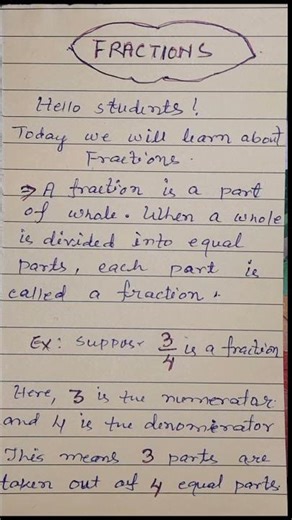 FRACTIONS
Hello students!
Today we will learn about
Fractions.
⇒ A fraction is a part
of whole. When a whole
is divided into equal
parts, each part is
called a fraction.
Ex: Suppose 3/4 is a fraction
Here, 3 is the numerator
and 4 is the denominator
This means 3 parts are
taken out of 4 equal parts